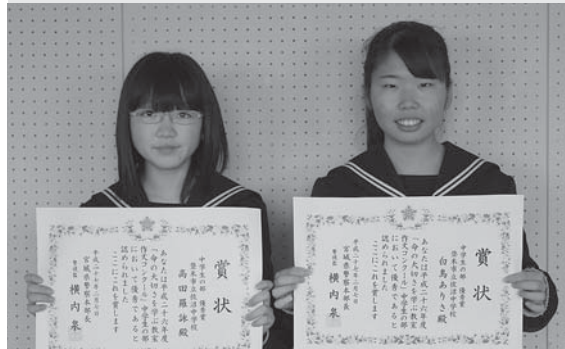 賞状
中学生の部　優秀賞
登米市立佐沼中学校
高田羅詠殿
あなたは平成二十六年度
「命の大切さを学ぶ教室
作文コンクール」中学生の部
において優秀であると
認められました
ここにこれを賞します
平成二十七年二月七日
宮城県警察本部長
警視長　横内泉
賞状
中学生の部　優秀賞
登米市立佐沼中学校
白鳥ありさ殿
あなたは平成二十六年度
「命の大切さを学ぶ教室
作文コンクール」中学生の部
において優秀であると
認められました
ここにこれを賞します
平成二十七年二月七日
宮城県警察本部長
警視長　横内泉